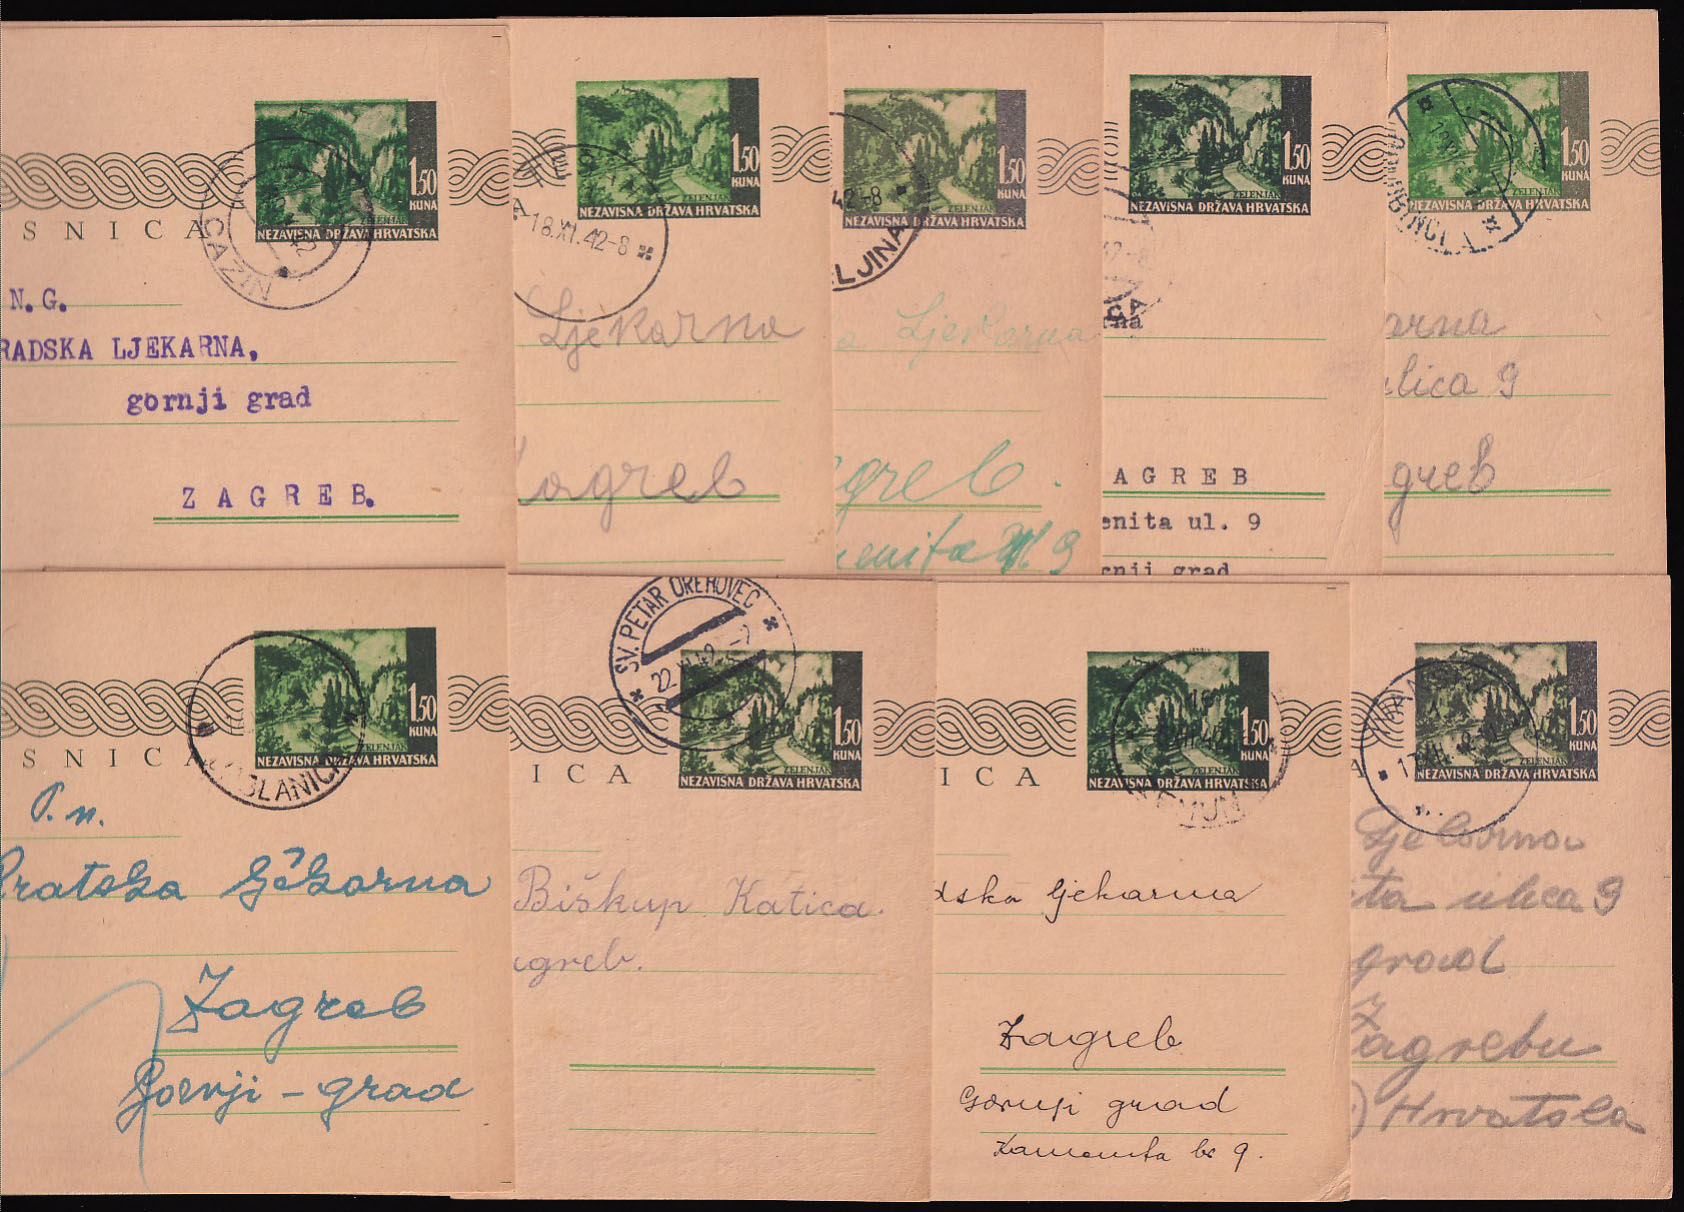 SNICA
1.50
KUNA
ZELENJAK
NEZAVISNA DRŽAVA HRVATSKA
CAZIN
N.G.
RADSKA LJEKARNA,
gornji grad
ZAGREB.
1.50
KUNA
ZELENJAK
NEZAVISNA DRŽAVA HRVATSKA
-18.XI.42-8
Ljekarna
Zagreb
1.50
KUNA
ZELENJAK
NEZAVISNA DRŽAVA HRVATSKA
42-8
LJINA
a Ljekarna
greb.
enita ul. 9
1.50
KUNA
ZELENJAK
NEZAVISNA DRŽAVA HRVATSKA
rna
AGREB
enita ul. 9
rnji grad
1.50
KUNA
arna
ulica 9
greb
SNICA
1.50
KUNA
ZELENJAK
NEZAVISNA DRŽAVA HRVATSKA
SLANICA
P.n.
Zagreb
Gornji - grad
ICA
SV. PETAR OREHOVEC
22.
1.50
KUNA
ZELENJAK
NEZAVISNA DRŽAVA HRVATSKA
Biškup Katica.
agreb.
ICA
1.50
KUNA
ZELENJAK
NEZAVISNA DRŽAVA HRVATSKA
ZEMUN
dska ljekarna
Zagreb
Gornji grad
Kamenita br 9.
A
1.50
KUNA
ZELENJAK
NEZAVISNA DRŽAVA HRVATSKA
Ljekarna
ita ulica 9
grad
Zagrebu
Hrvatska